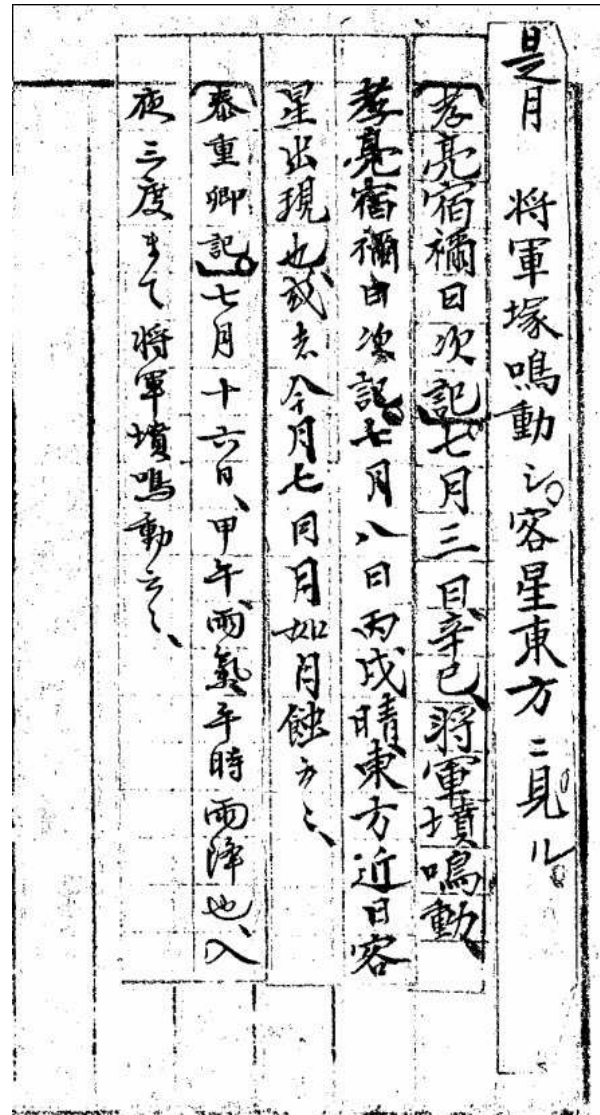 是月　将軍塚鳴動シ。客星東方ニ見ル。
〔孝亮宿禰日次記〕七月三日、辛巳、将軍墳鳴動、
孝亮宿禰日次記。七月八日丙戌晴、東方近日客
星出現也、或者今月七日月如月蝕云々、
〔泰重卿記〕七月十六日、甲午、雨氣、午時雨降也、入
夜三度まて将軍墳鳴動云々、